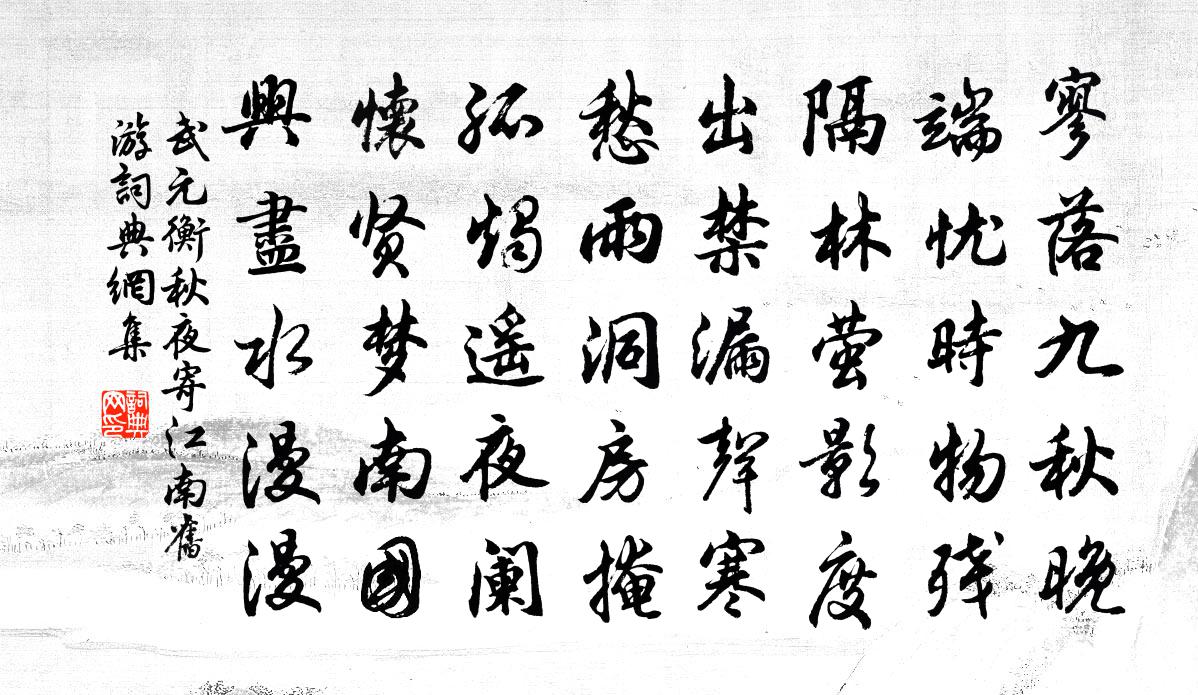 寥落九秋晚
端忧時物残
隔林萤影度
出禁漏聲寒
愁雨洞房掩
孤燭遥夜阑
懷贤梦南國
興盡水漫漫
武元衡秋夜寄江南舊
游詞典網集
詞典网印